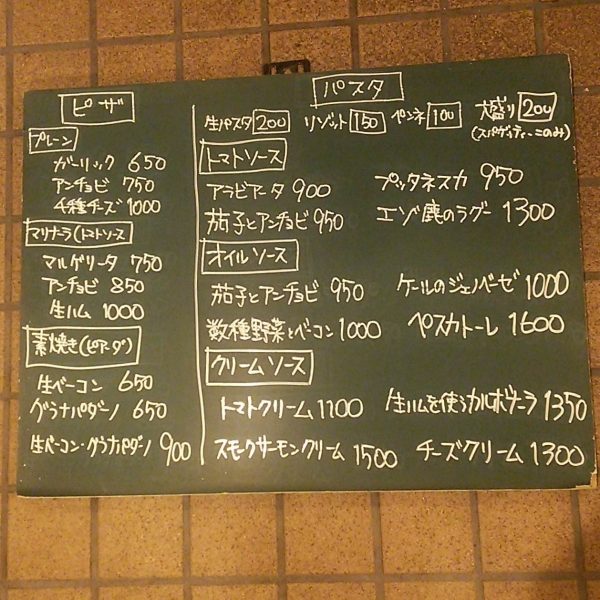 ピザ
プレーン
ガーリック 650
アンチョビ 750
千種チーズ 1000
マリナーラ(トマトソース
マルゲリータ 750
アンチョビ 850
生ハム 1000
素焼き(ピアーダ)
生ベーコン 650
グラナパダーノ 650
生ベーコン・グラナパダーノ 900
パスタ
生パスタ 200 リゾット 150 ペンネ 100 大盛り 200
(スパゲッティーニのみ)
トマトソース
アラビアータ 900 プッタネスカ 950
茄子とアンチョビ 950 エゾ鹿のラグー 1300
オイルソース
茄子とアンチョビ 950 ケールのジェノベーゼ 1000
数種野菜とベーコン 1000 ペスカトーレ 1600
クリームソース
トマトクリーム 1100 生ハムを使うカルボナーラ 1350
スモークサーモンクリーム 1500 チーズクリーム 1300